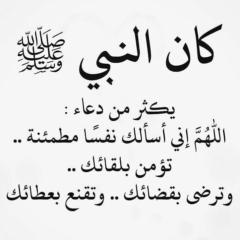 كان النبي ﷺ
يكثر من دعاء :
اللهُمَّ إني أسألك نفسًا مطمئنة ..
تؤمن بلقائك ..
وترضى بقضائك .. وتقنع بعطائك